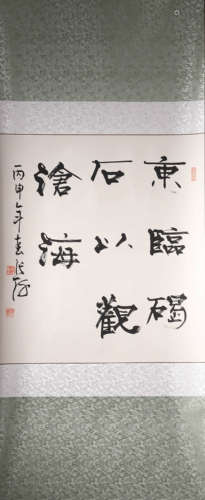 東臨碣
石以觀
滄海
丙申年春